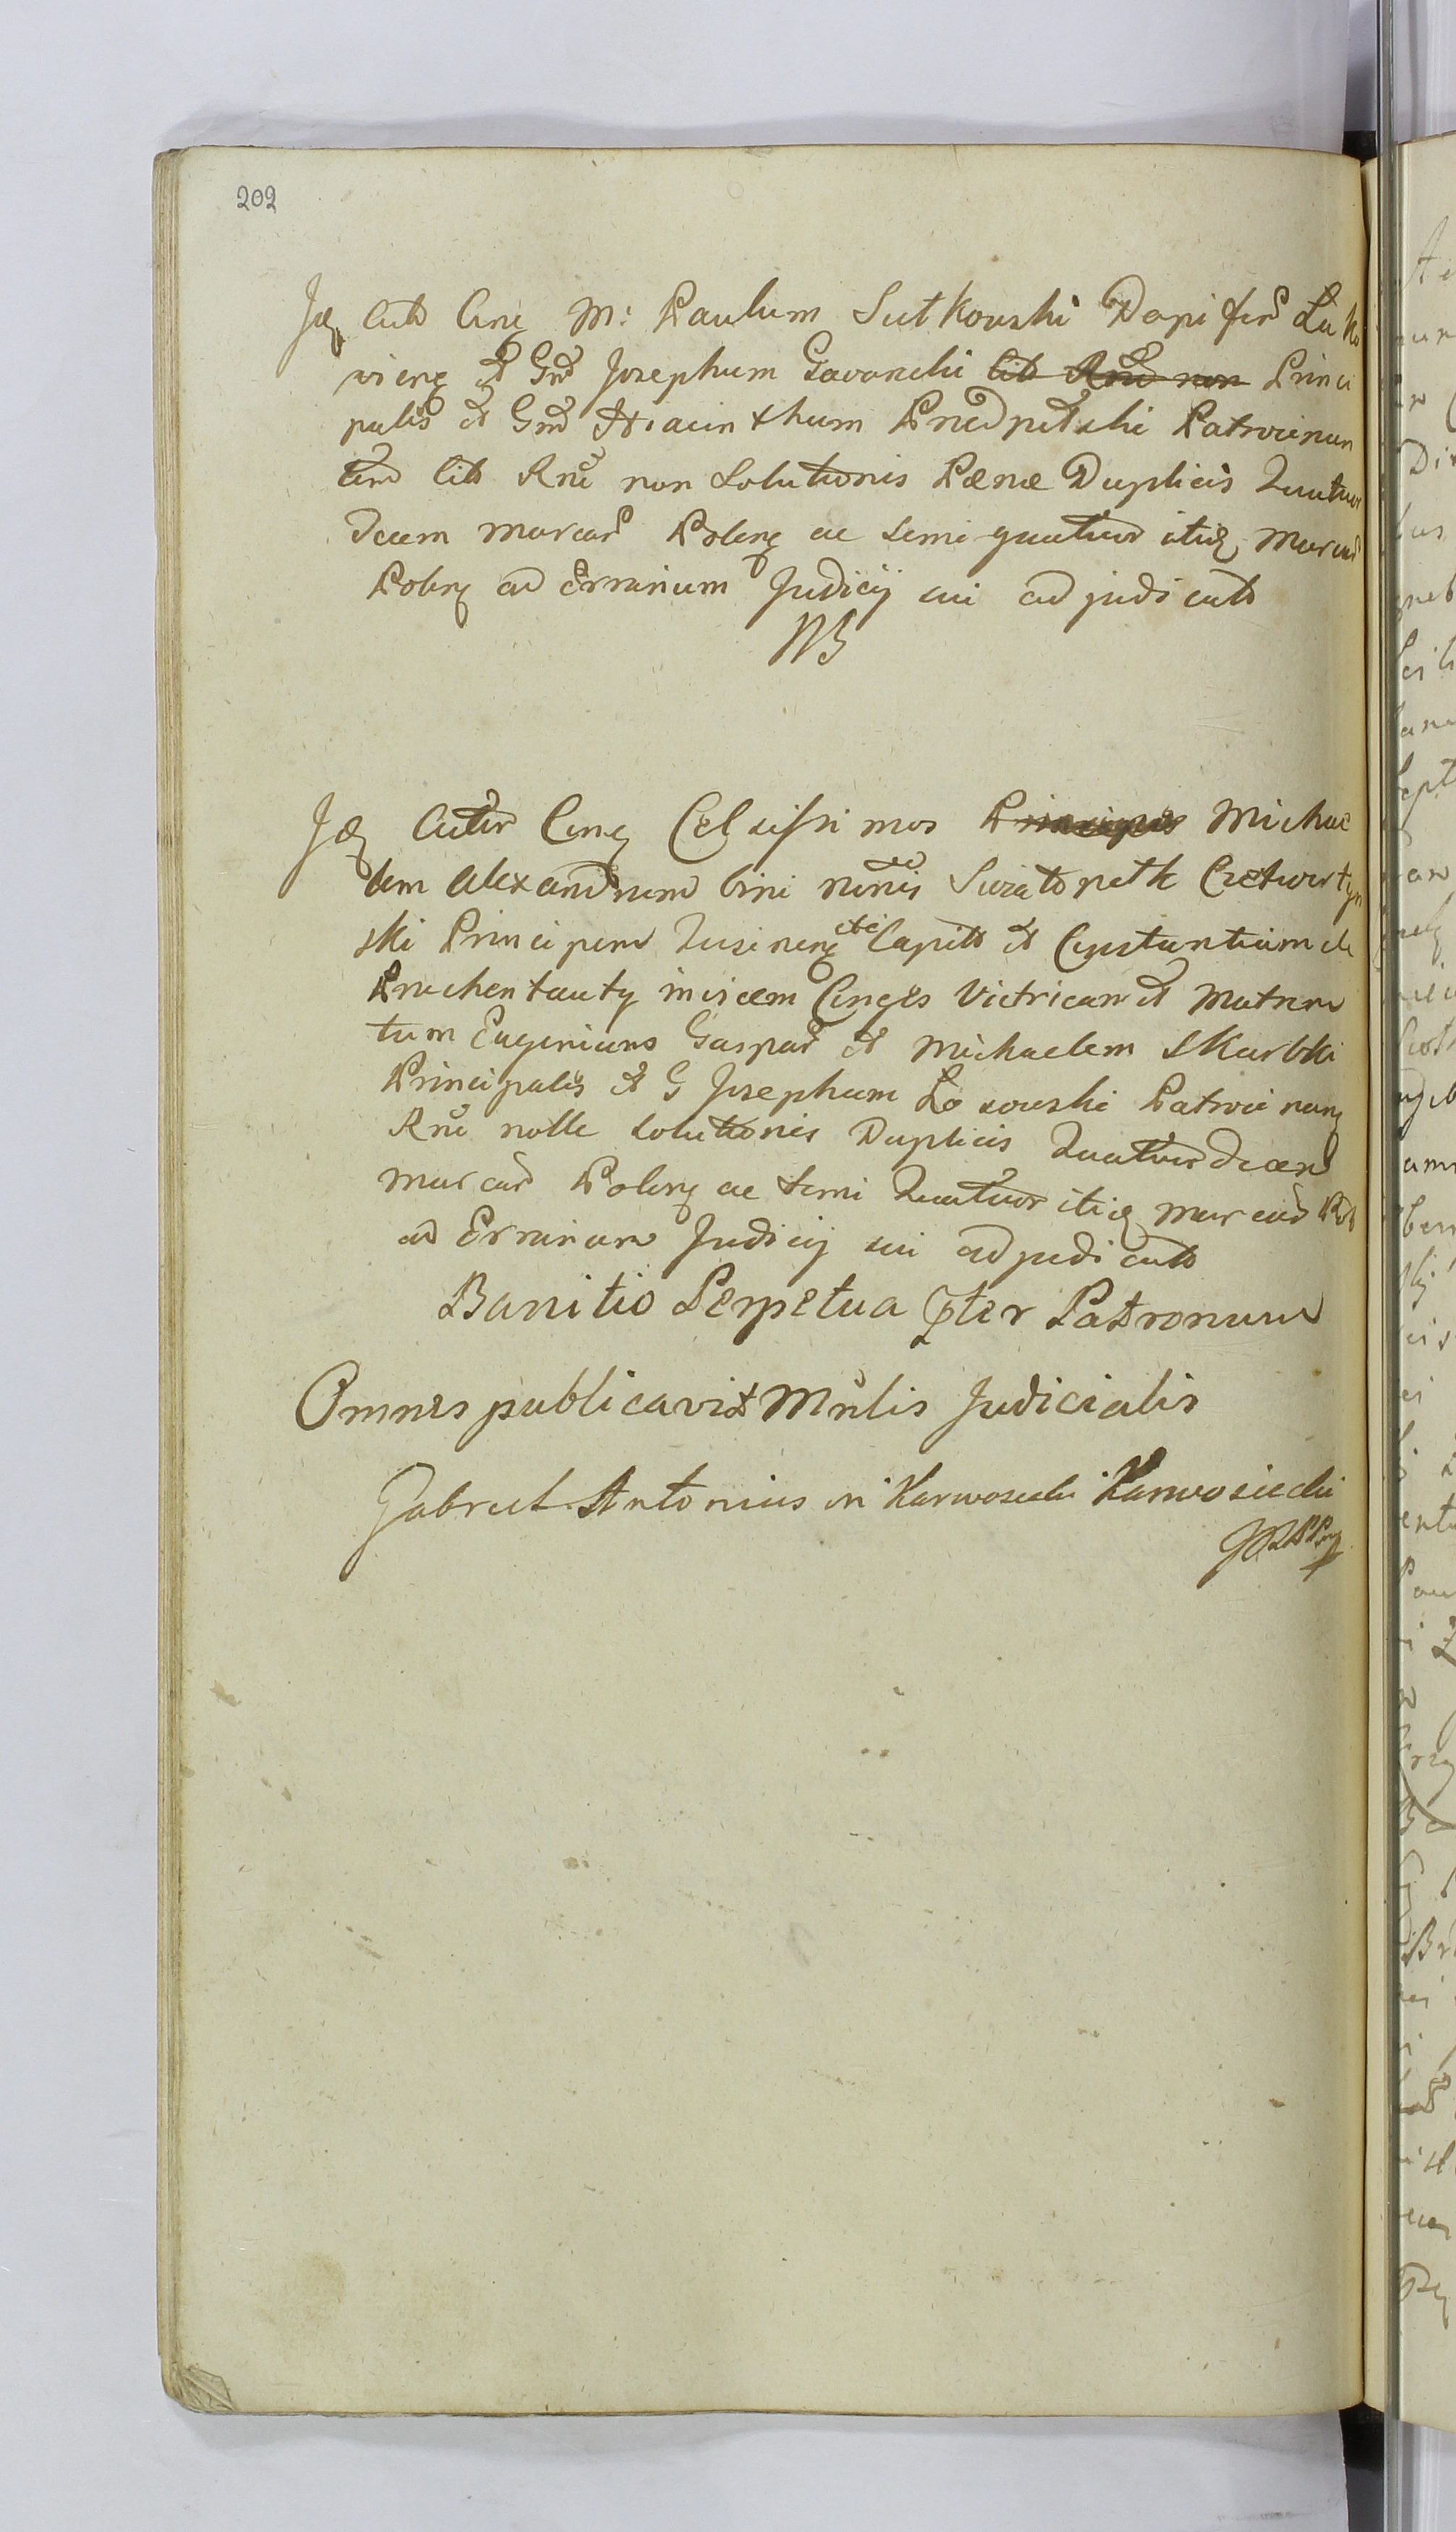 202
Idẽ Citõ Cing M: Paulum Sutkowski Dapiferũ Łu ko
wieng et Gnd Josephum Gavanchi Princi
palis et Gnd Hiacinthum Patrocinan
tem Citõ Rnẽ non Solutionis Pænæ Duplicis Quatuor
decem marcar Poleng ac semi quatuor itidẽ marcar
Poleng ad Errarium Judicij sui adjudicatõ
NB
Idẽ Citer Cing Celsissimos Michae
lem Alexandrum bini nõnis Swiatopełk Czetwertyn
ski Principem Capitõ et Constantiam de
invicem Cinges Victricem et Matrem
tum Eugenium Gaspar et Michaelem Skarbki
Principalis et G Josephum Łosowski Patrocinang
Rnẽ nolle solutionis Duplicis Quatuordecem
marcar Poleng ac semi Quatuor itidẽ marcar Pol
ad Errarium Judicij sui adjudicatõ
Banitio Perpetua pter Patronum
Omnes publicavit Mnlis Judicialis
Gabriel Antonius in Karwosieki Karwosiecki